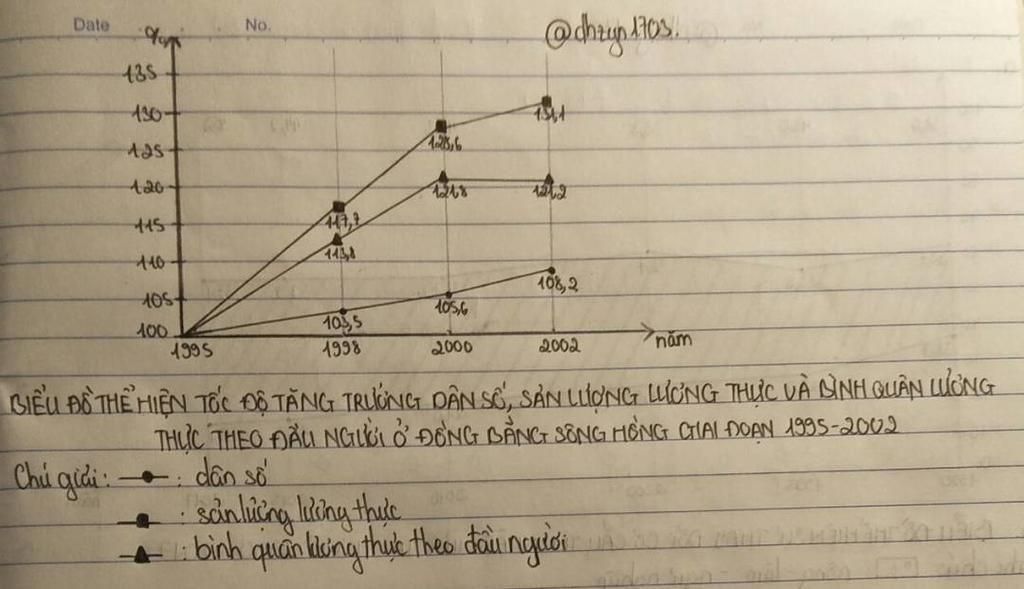 Date No. @dhzyn1703.
%
135
130
125
120
115
110
105
100
131,1
128,6
121,8
121,2
117,7
113,8
108,2
105,6
103,5
1995 1998 2000 2002 năm
BIỂU ĐỒ THỂ HIỆN TỐC ĐỘ TĂNG TRƯỞNG DÂN SỐ, SẢN LƯỢNG LƯƠNG THỰC VÀ BÌNH QUÂN LƯƠNG
THỰC THEO ĐẦU NGƯỜI Ở ĐỒNG BẰNG SÔNG HỒNG GIAI ĐOẠN 1995-2002
Chú giải: : dân số
: sản lượng lương thực
: bình quân lương thực theo đầu người